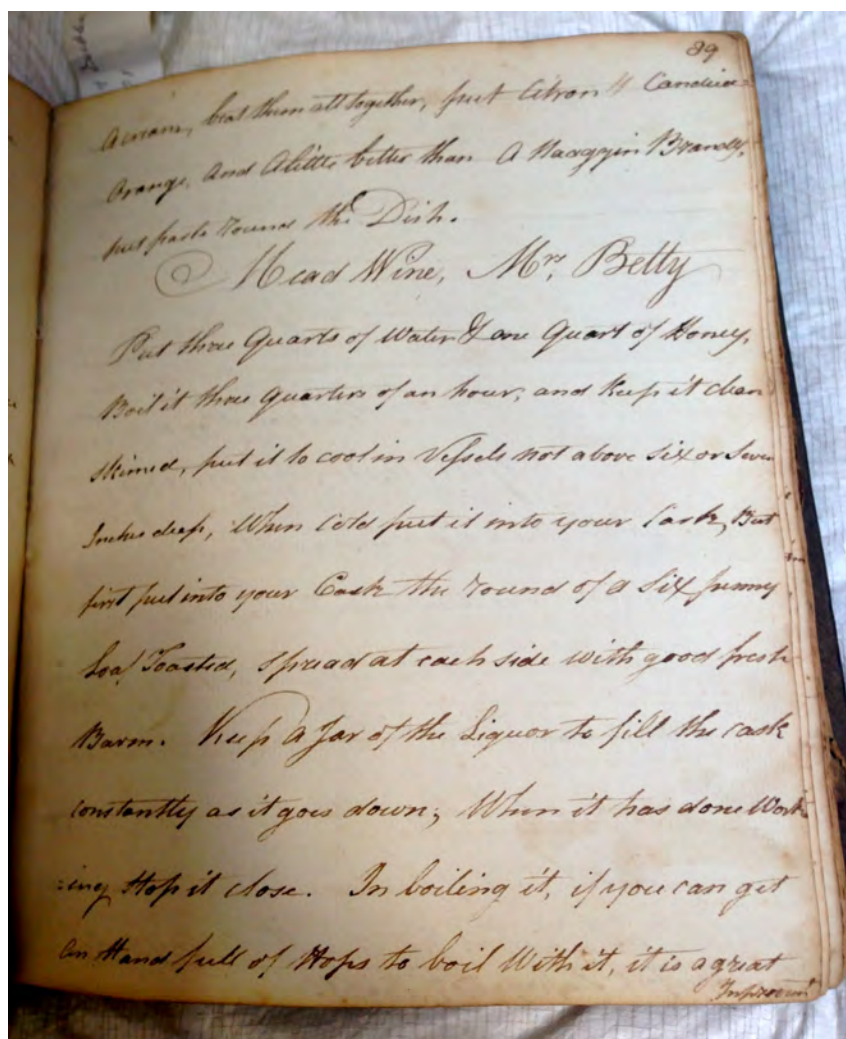 89
a cream, beat them all together, put Citron & Candied
Orange, and A little better than A Naggin Brandy,
put paste round the Dish.
Mead Wine, Mrs, Betty
Put three Quarts of Water & one Quart of Honey,
Boil it three Quarters of an hour, and Keep it clean
skimed, put it to cool in Vessels not above six or Seven
Inches deep, When Cold put it into your Cask, But
first put into your Cask the round of a Six penny
loaf Toasted, spread at each side with good fresh
Barm. Keep A Jar of the Liquor to fill the cask
constantly as it goes down; When it has done Work
:ing Stop it close. In boiling it, if you can get
an Hand full of Hops to boil With it, it is a great
Improvemt